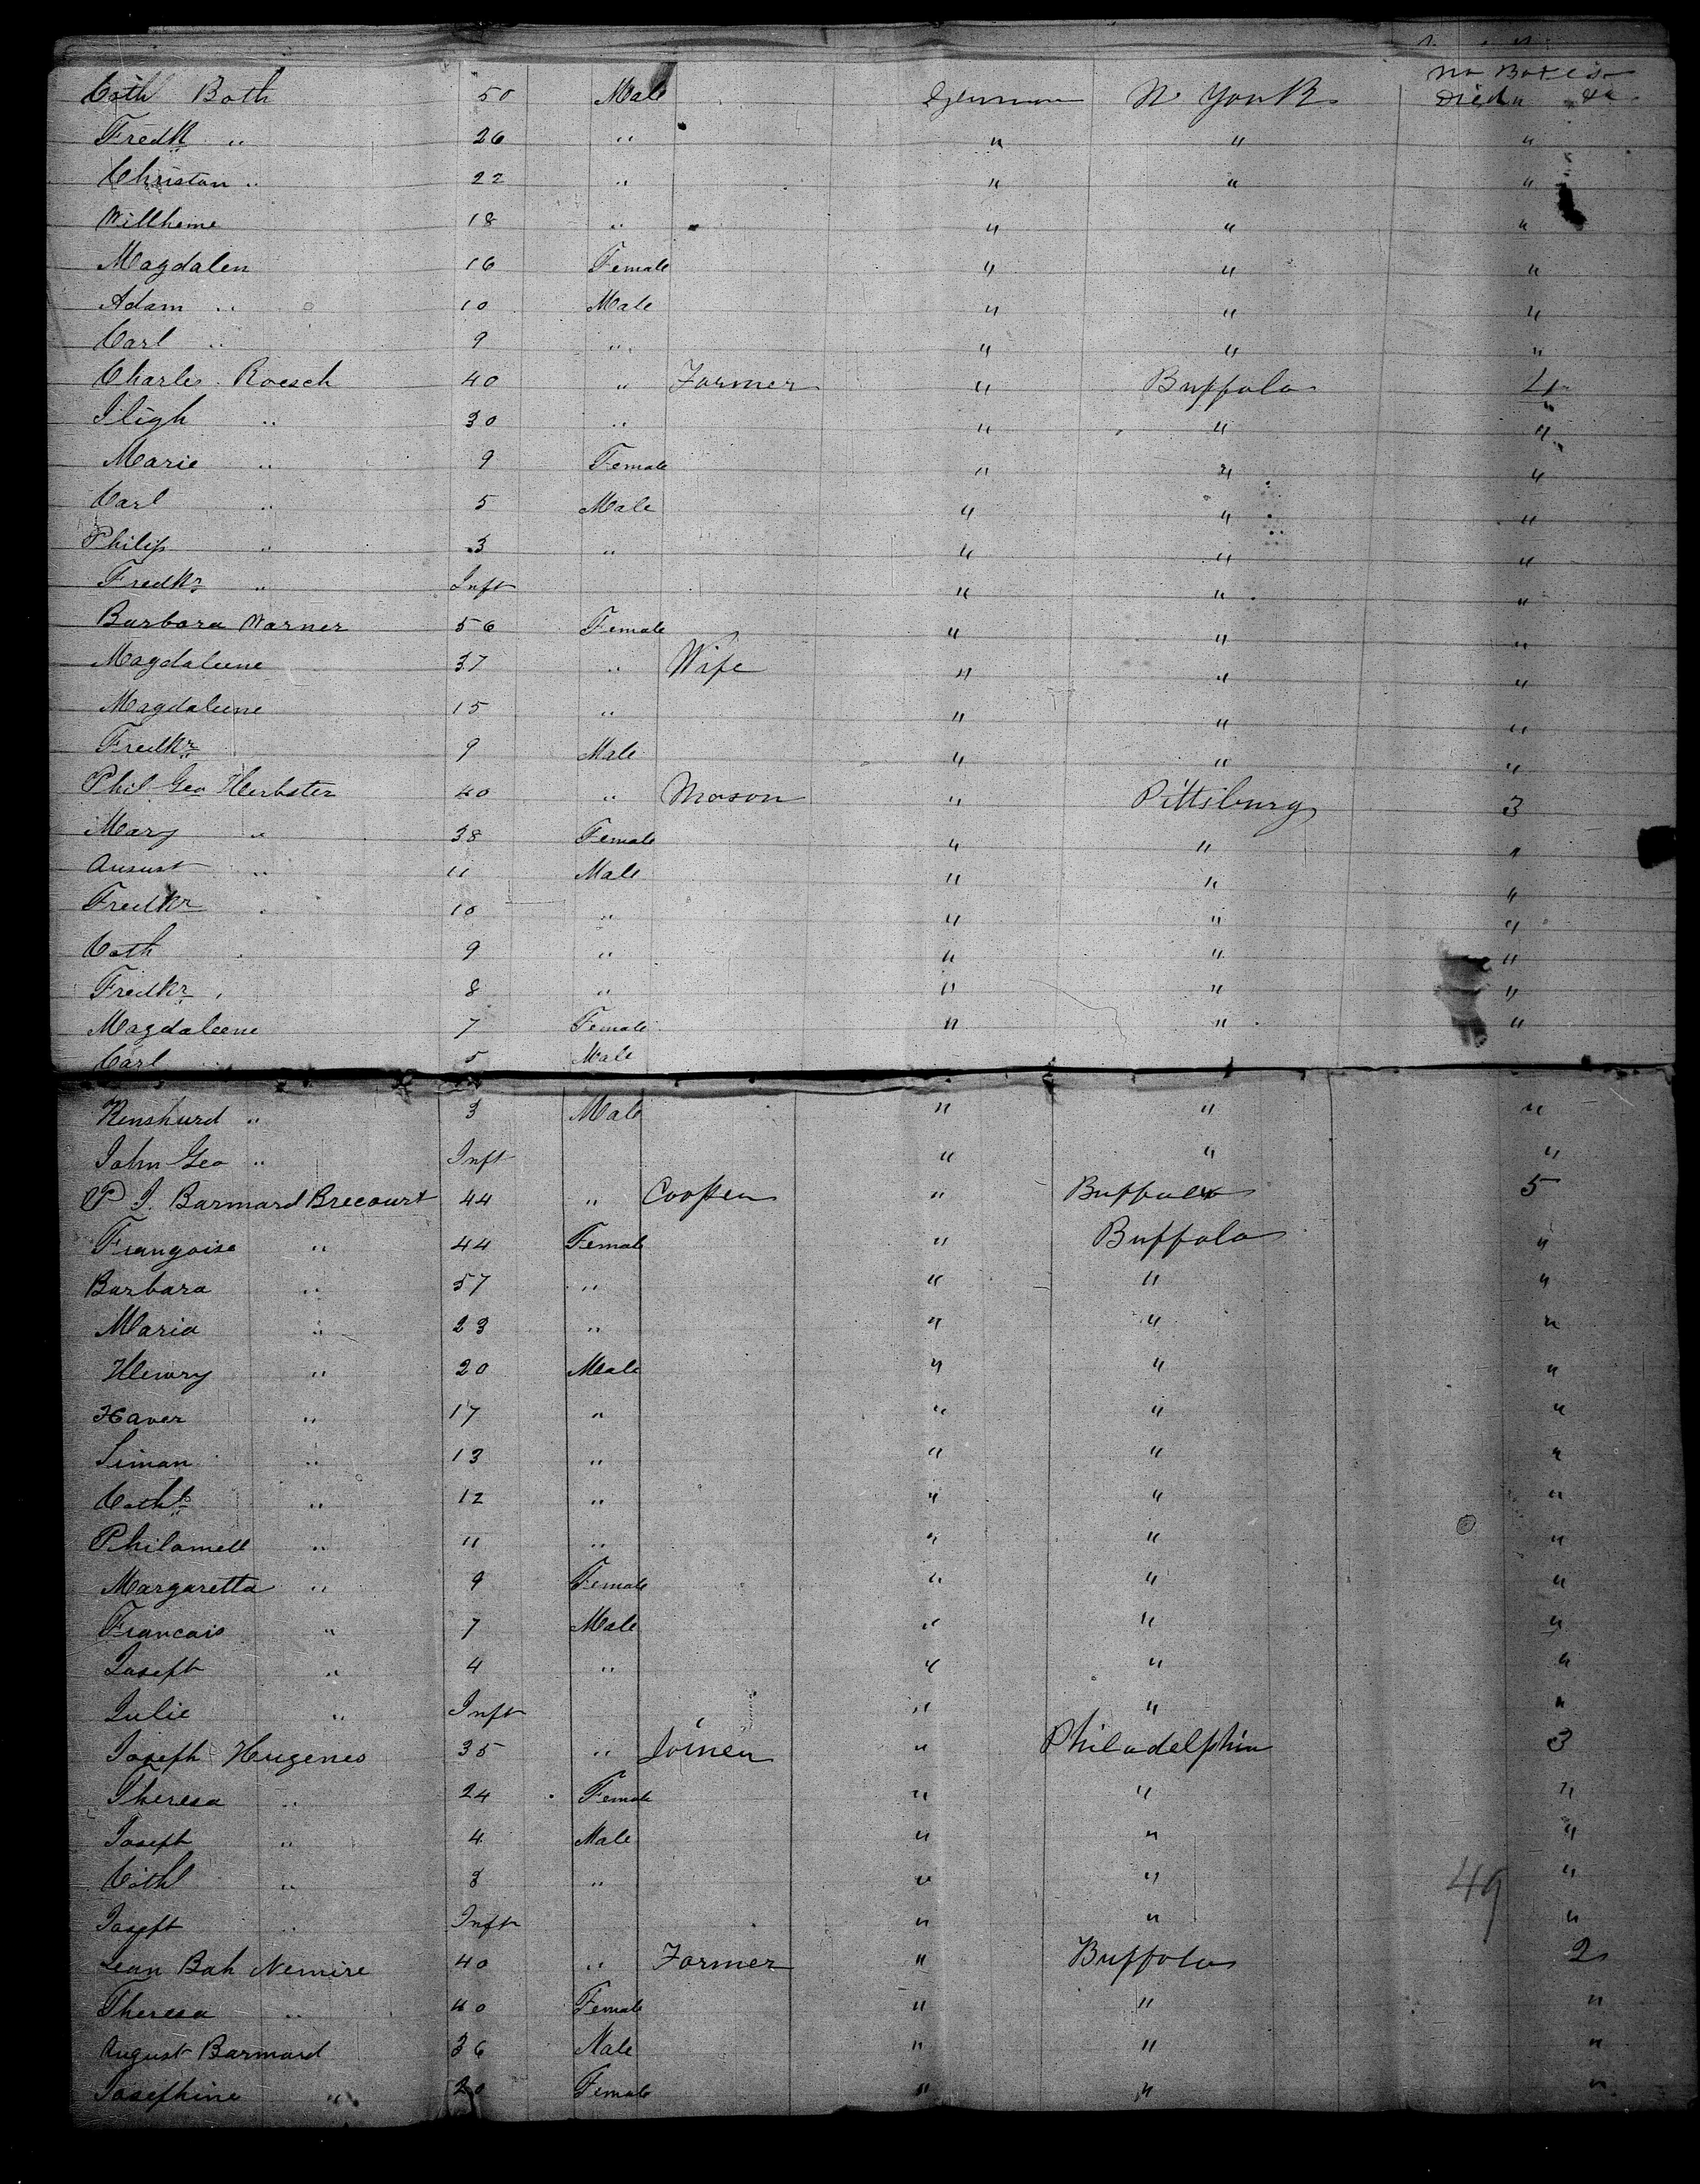 No Boxes
Cath Both 50 Male German N. York Died &c
Fredk " 26 " " " "
Christan " 22 " " " "
Willheme 18 " " " "
Magdalen 16 Female " " "
Adam " 10 Male " " "
Carl " 9 " " " "
Charles Roesch 40 " Farmer " Buffalo 4
Iligh " 30 " " " "
Marie " 9 Female " " "
Carl " 5 Male " " "
Philip " 3 " " " "
Fredkr " Inft " " "
Barbara Warner 56 Female " " "
Magdaleene 37 " Wife " " "
Magdaleene 15 " " " "
Fredkr 9 Male " " "
Phil Geo Herbster 40 " Mason " Pittsburg 3
Mary " 38 Female " " "
August " 11 Male " " "
Fredkr " 10 " " " "
Cath " 9 " " " "
Fredkr " 8 " " " "
Magdaleene 7 Female " " "
Carl " 5 Male
Renshurd " 3 Male " " "
John Geo " Inft " " "
P J. Barmard Brecourt 44 " Cooper " Buffalo 5
Françoise " 44 Female " Buffalo "
Barbara " 57 " " " "
Maria " 23 " " " "
Henry " 20 Male " " "
Xaver " 17 " " " "
Siman " 13 " " " "
Cathe " 12 " " " "
Philomell " 11 " " " "
Margaretta " 9 Female " " "
Francais " 7 Male " " "
Joseph " 4 " " " "
Julie " Inft " " "
Joseph Hugenes 35 " Joiner " Philadelphia 3
Theresa " 24 Female " " "
Joseph " 4 Male " " "
Cath " 3 " " " "
49
Joseph " Inft " " "
Jean Bah Nemire 40 " Farmer " Buffalo 2
Theresa " 40 Female " " "
August Barmard 36 Male " " "
Josephine " 20 Female " " "